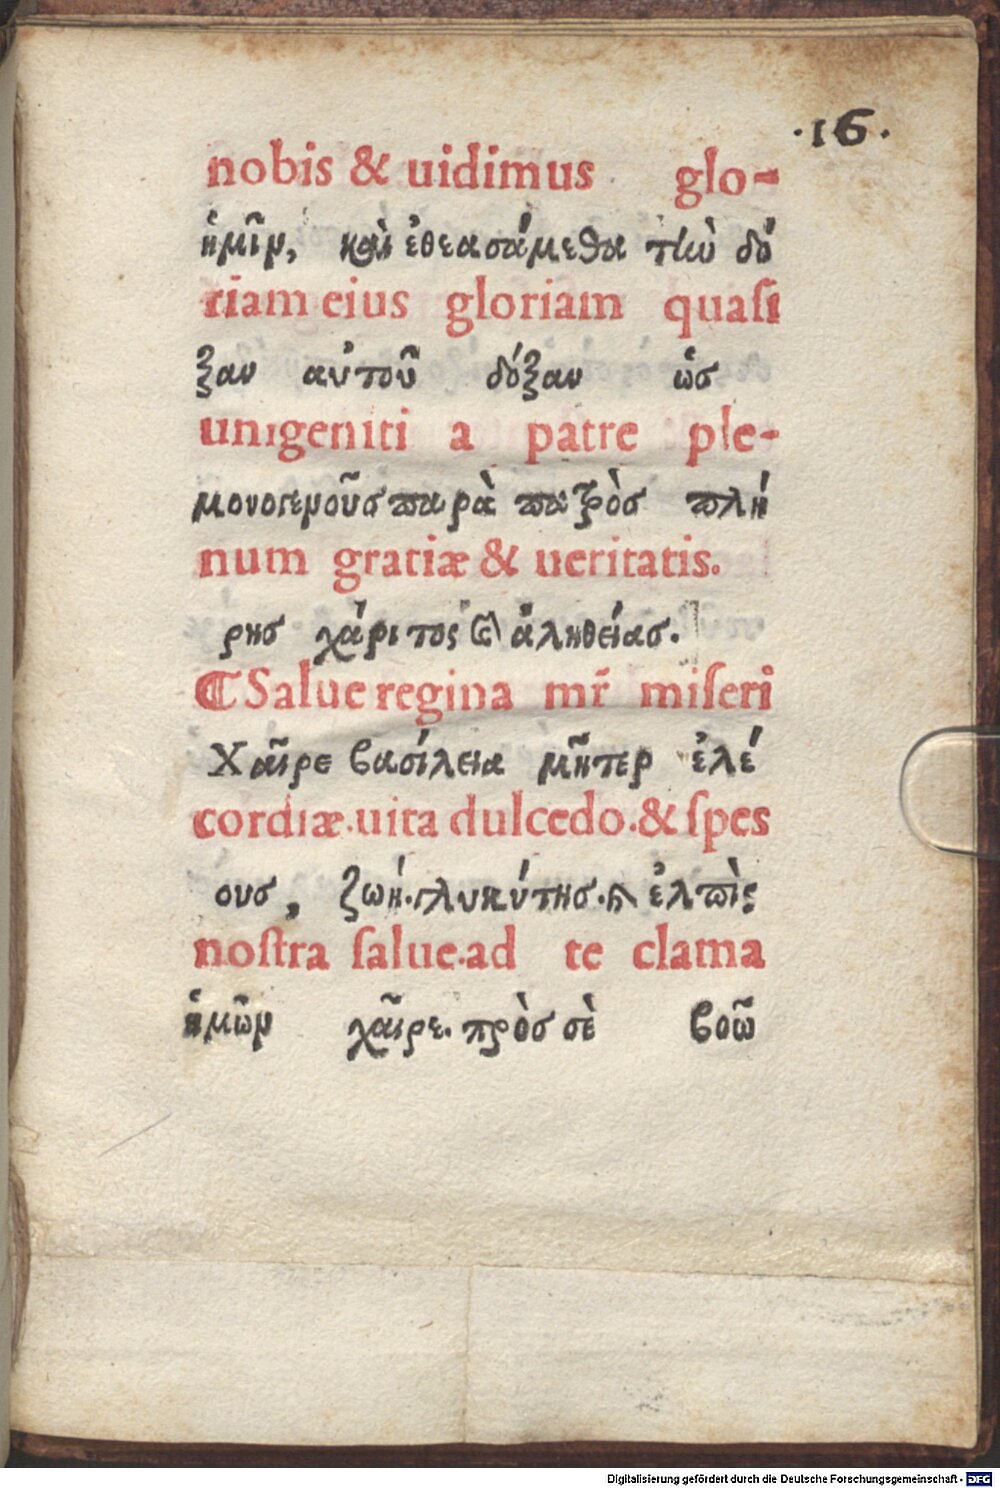 ·16·
nobis & uidimus glo-
ἡμῖν, καὶ ἐθεασάμεθα τὴν δό
riam eius gloriam quaſi
ξαν αὐτοῦ δόξαν ὡσ
unigeniti a patre ple-
μονογενοῦσ παρὰ πατρὸσ πλή
num gratiæ & ueritatis.
ρησ χάριτος ϗ ἀληθείασ.
¶ Salue regina mr̄ miſeri
Χαῖρε βασίλεια μῆτερ ἐλέ
cordiæ.uita dulcedo.& ſpes
ουσ, ζωή.γλυκύτησ.ϗ ἐλπὶς
noſtra ſalue.ad te clama
ἡμῶν χαῖρε.πρὸσ σὲ βοῶ
Digitalisierung gefördert durch die Deutsche Forschungsgemeinschaft - DFG